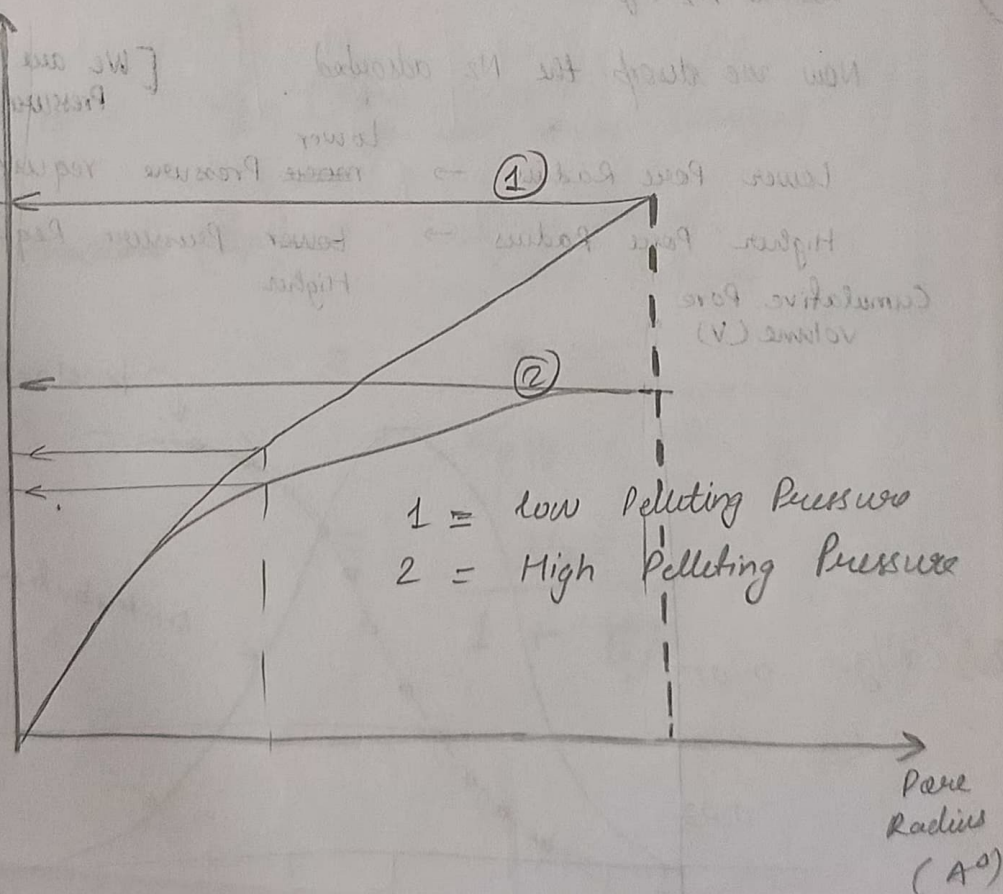 1
2
1 = low Pelleting Pressure
2 = High Pelleting Pressure
Pore
Radius
(A°)